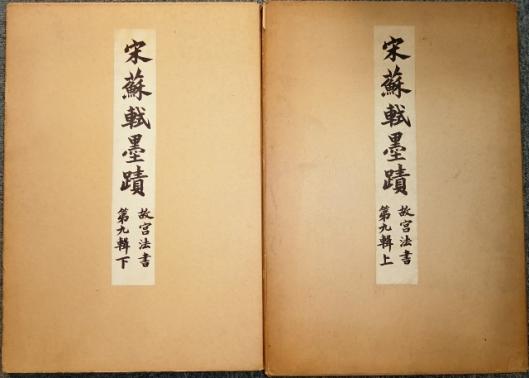 宋蘇軾墨蹟
故宮法書
第九輯上
宋蘇軾墨蹟
故宮法書
第九輯下